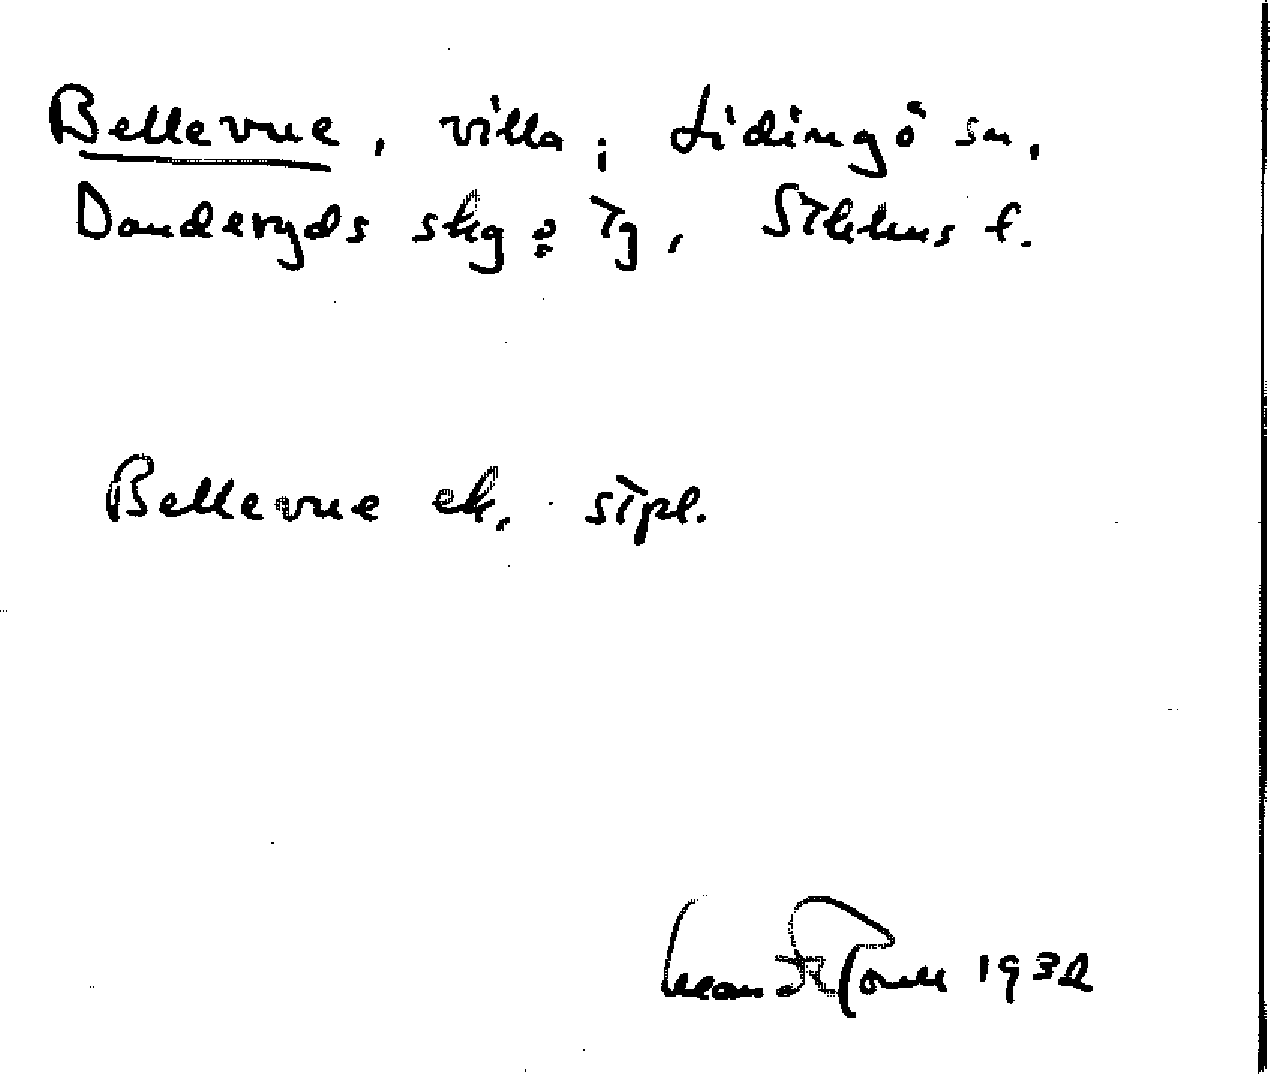 Bellevue, villa, i Lidingö sn,
Danderyds skg:s Tg, Sthlms l.
Bellevue ek. stpl.
1932